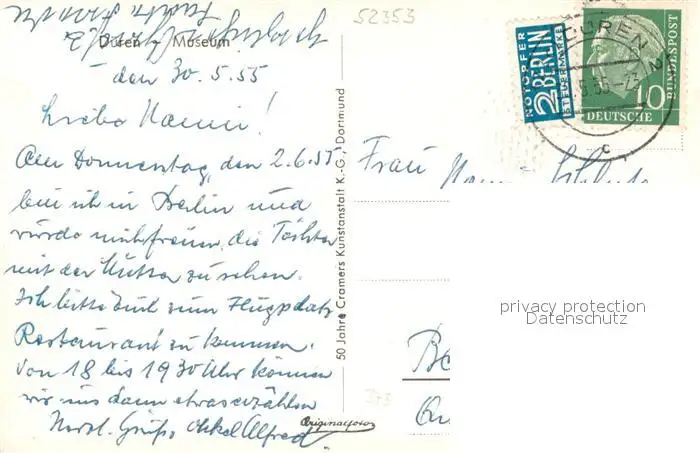 52353
Düren - Museum
den 30.5.55
Liebe Nanni!
Am Donnerstag, den 2.6.55
bin ich in Berlin und
würde mich freuen, die Tochter
mit der Mutter zu sehen.
Ich bitte Euch zum Flugplatz
Restaurant zu kommen.
Von 18 bis 19 30 Uhr können
wir uns dann etwas erzählen
Herzl. Grüße, Onkel Alfred
50 Jahre Cramers Kunstanstalt K.-G., Dortmund
Originalfoto
NOTOPFER
2 BERLIN
STEUERMARKE
DÜREN
10
DEUTSCHE
BUNDESPOST
Frau
privacy protection
Datenschutz